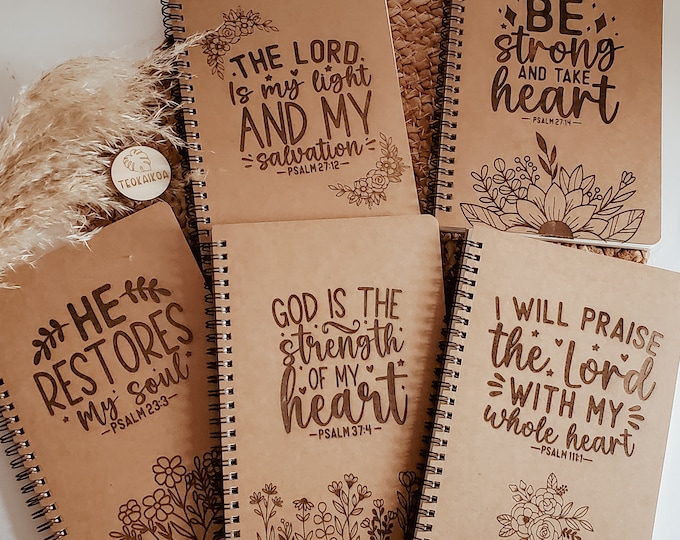 THE LORD
Is my light
AND MY
salvation
PSALM 27:12
BE
strong
AND TAKE
heart
PSALM 27:14
TEOKAIKOA
HE
RESTORES
my soul
PSALM 23:3
GOD IS THE
strength
OF MY
heart
PSALM 37:4
I WILL PRAISE
the Lord
WITH MY
whole heart
PSALM 111:1